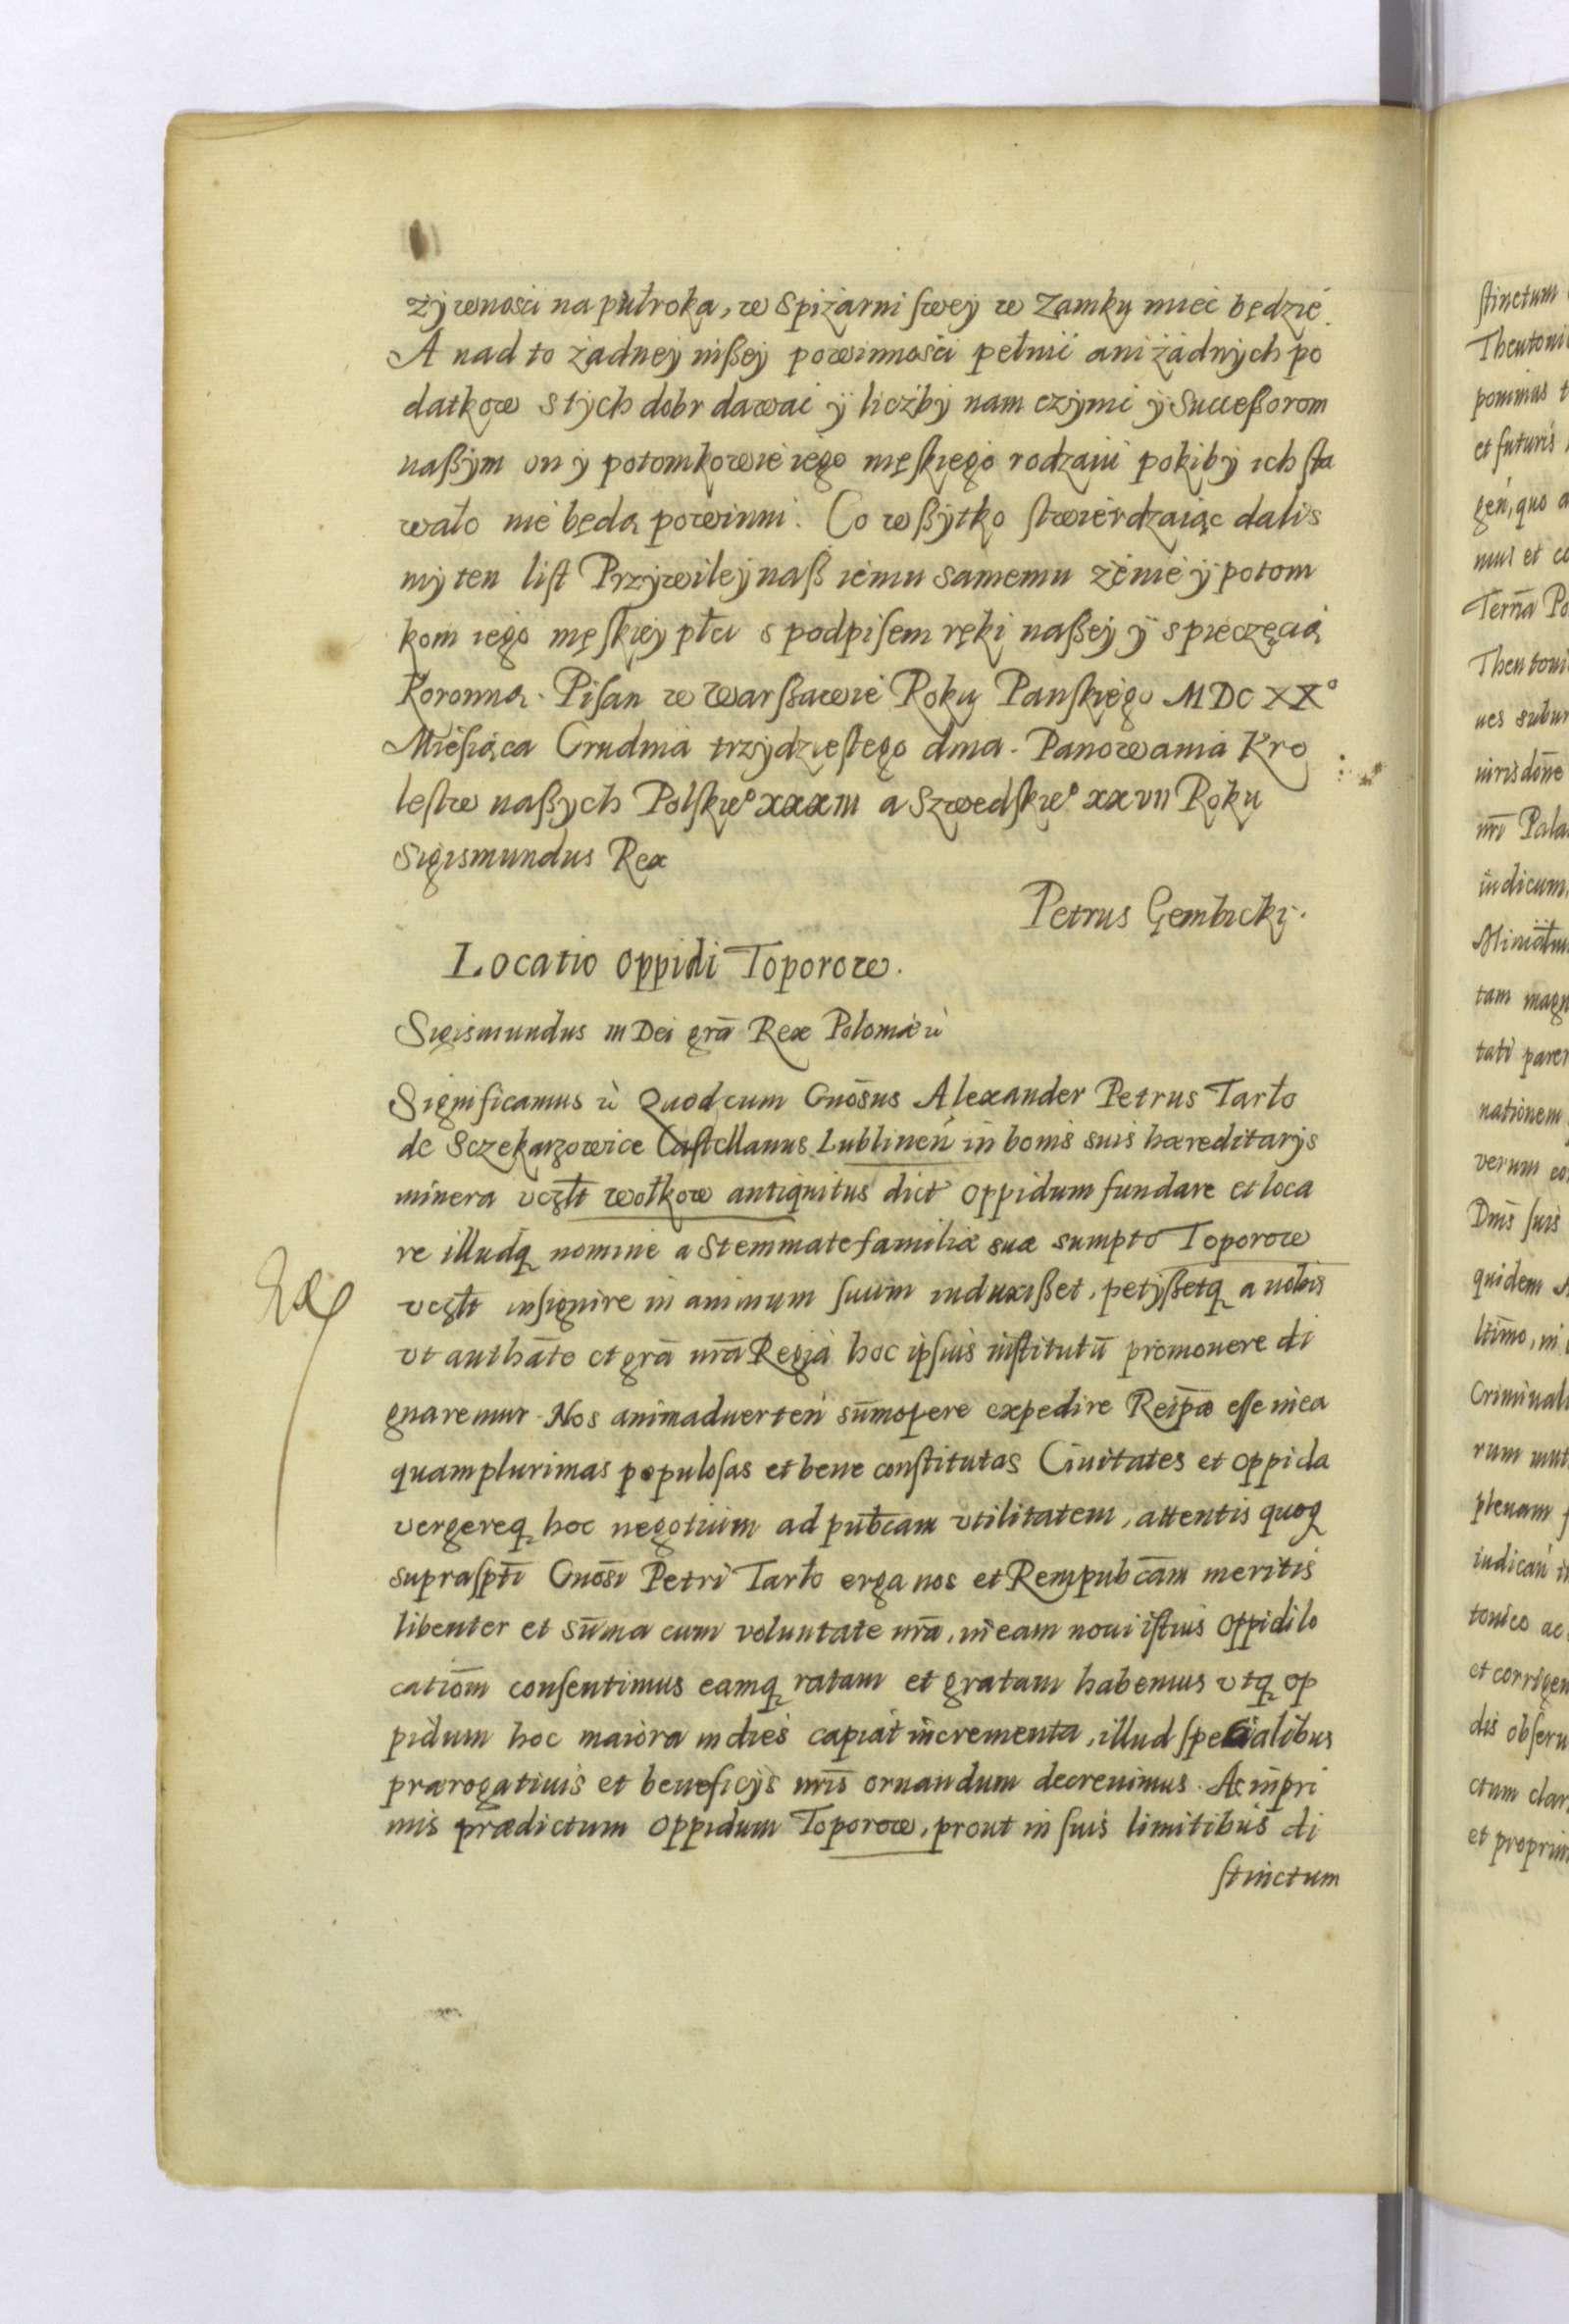 żywnosci na pułroka, w spiżarni swey w Zamku miec będzie.
A nad to żadney inßey powinnosci pełnić ani żadnych po
datkow s tych dobr dawać ÿ liczby nam czynić ÿ Succeßorom
naßym on y potomkowie iego męskiego rodzaiu pokiby ich sta
wało nie będą powinni. Co wßytko stwierdzaiąc dalis
my ten list Przywiley naß iemu samemu żenie ÿ potom
kom iego męskiey płci s podpisem ręki naßey ÿ s pieczęcią
Koronną. Pisan w Warßawie Roku Panskiego MDCXX°
Miesiąca Grudnia trzydziestego dnia. Panowania Kro
lestw naßych Polskie° xxxiii a Szwedskie° xxvii Roku
Sigismundus Rex
Petrus Gembicki.
Locatio oppidi Toporow.
Sigismundus III Dei grā Rex Poloniæ ꝛc
Significamus ꝛc Quod cum Gnōsus Alexander Petrus Tarło
de Sczekarzowice Castellanus Lublineń in bonis suis hæreditarys
minera vcgłt Wołkow antiquitus dict oppidum fundare et loca
re illudq nomine a Stemmate familiæ suæ sumpto Toporow
vcgłt insignire in animum suum induxißet, petyßetq a nobis
vt authāte et grā nrā Regia hoc ipsius institutū promouere di
gnaremur. Nos animaduerteń sūmopere expedire Reipæ esse in ea
quamplurimas populosas et bene constitutas Ciuitates et oppida
vergereq hoc negotium ad pubcam vtilitatem, attentis quoq
suprasp̄ti Gnōsi Petri Tarło erga nos et Rempubcām meritis
libenter et sūma cum voluntate nrā, in eam noui istius oppidi lo
catiōm consentimus eamq ratam et gratam habemus vtq op
pidum hoc maiora in dies capiat incrementa, illud specialibus
prærogatiuis et beneficys nrīs ornandum decreuimus. Ac inpri
mis prædictum oppidum Toporow, prout in suis limitibus di
stinctum